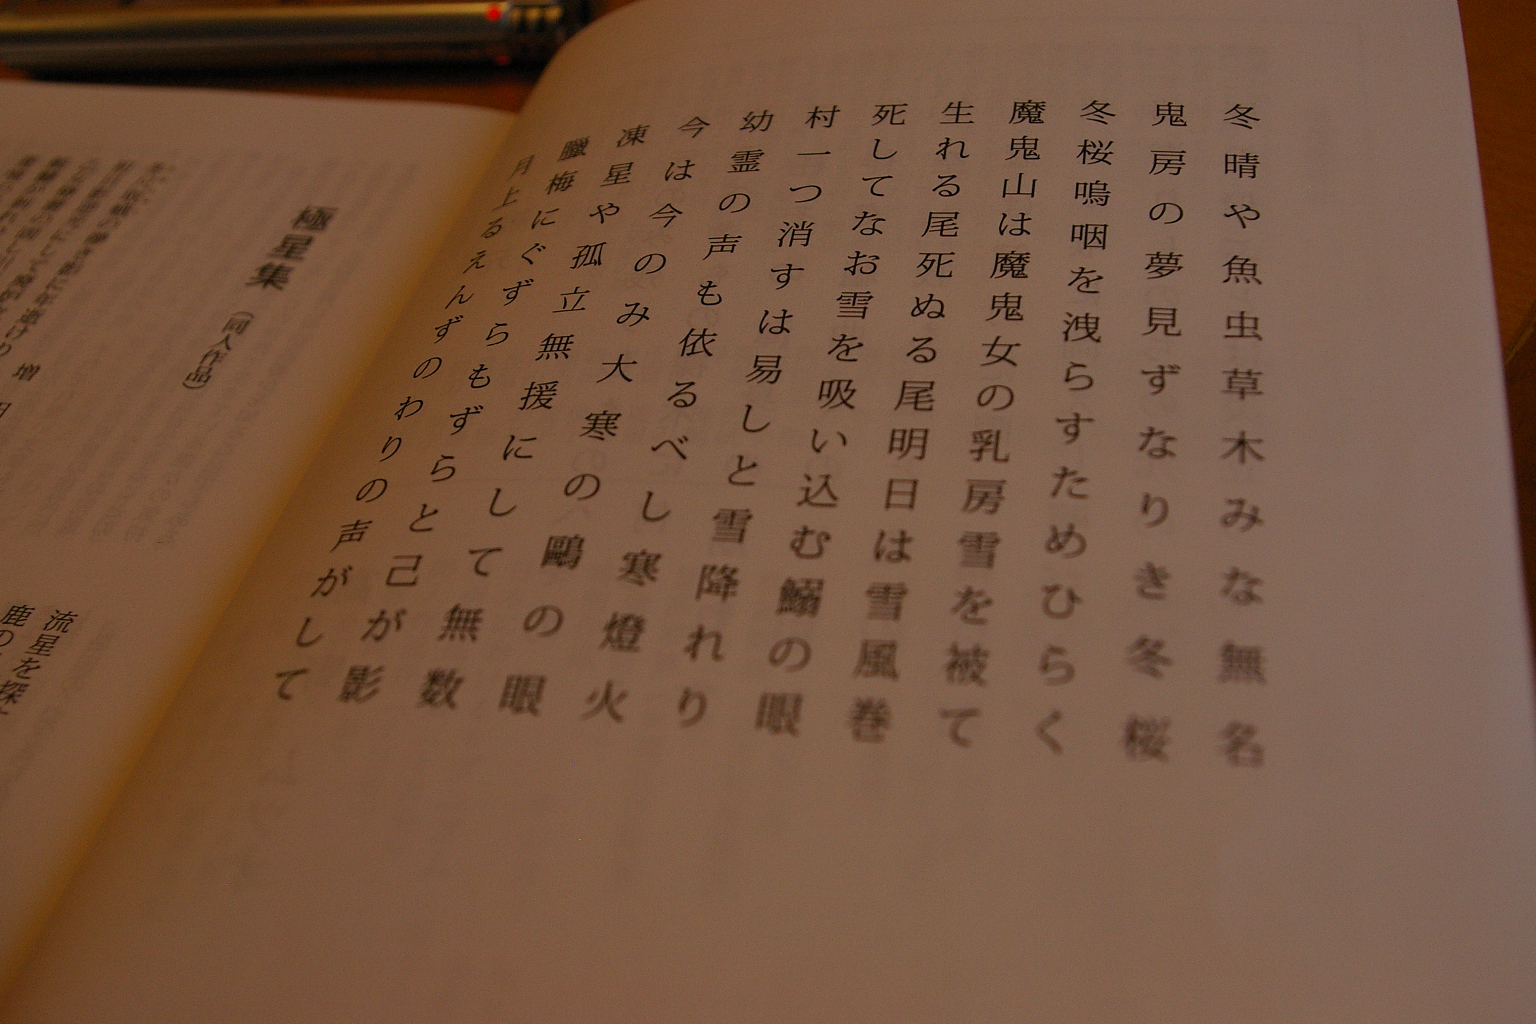 冬晴や魚虫草木みな無名
鬼房の夢見ずなりき冬桜
冬桜嗚咽を洩らすためひらく
魔鬼山は魔鬼女の乳房雪を被て
生れる尾死ぬる尾明日は雪風巻
死してなお雪を吸い込む鰯の眼
村一つ消すは易しと雪降れり
幼霊の声も依るべし寒燈火
今は今のみ大寒の鷗の眼
凍星や孤立無援にして無数
臘梅にぐずらもずらと己が影
月上るえんずのわりの声がして
極星集
（同人作品）
流星を探
鹿の